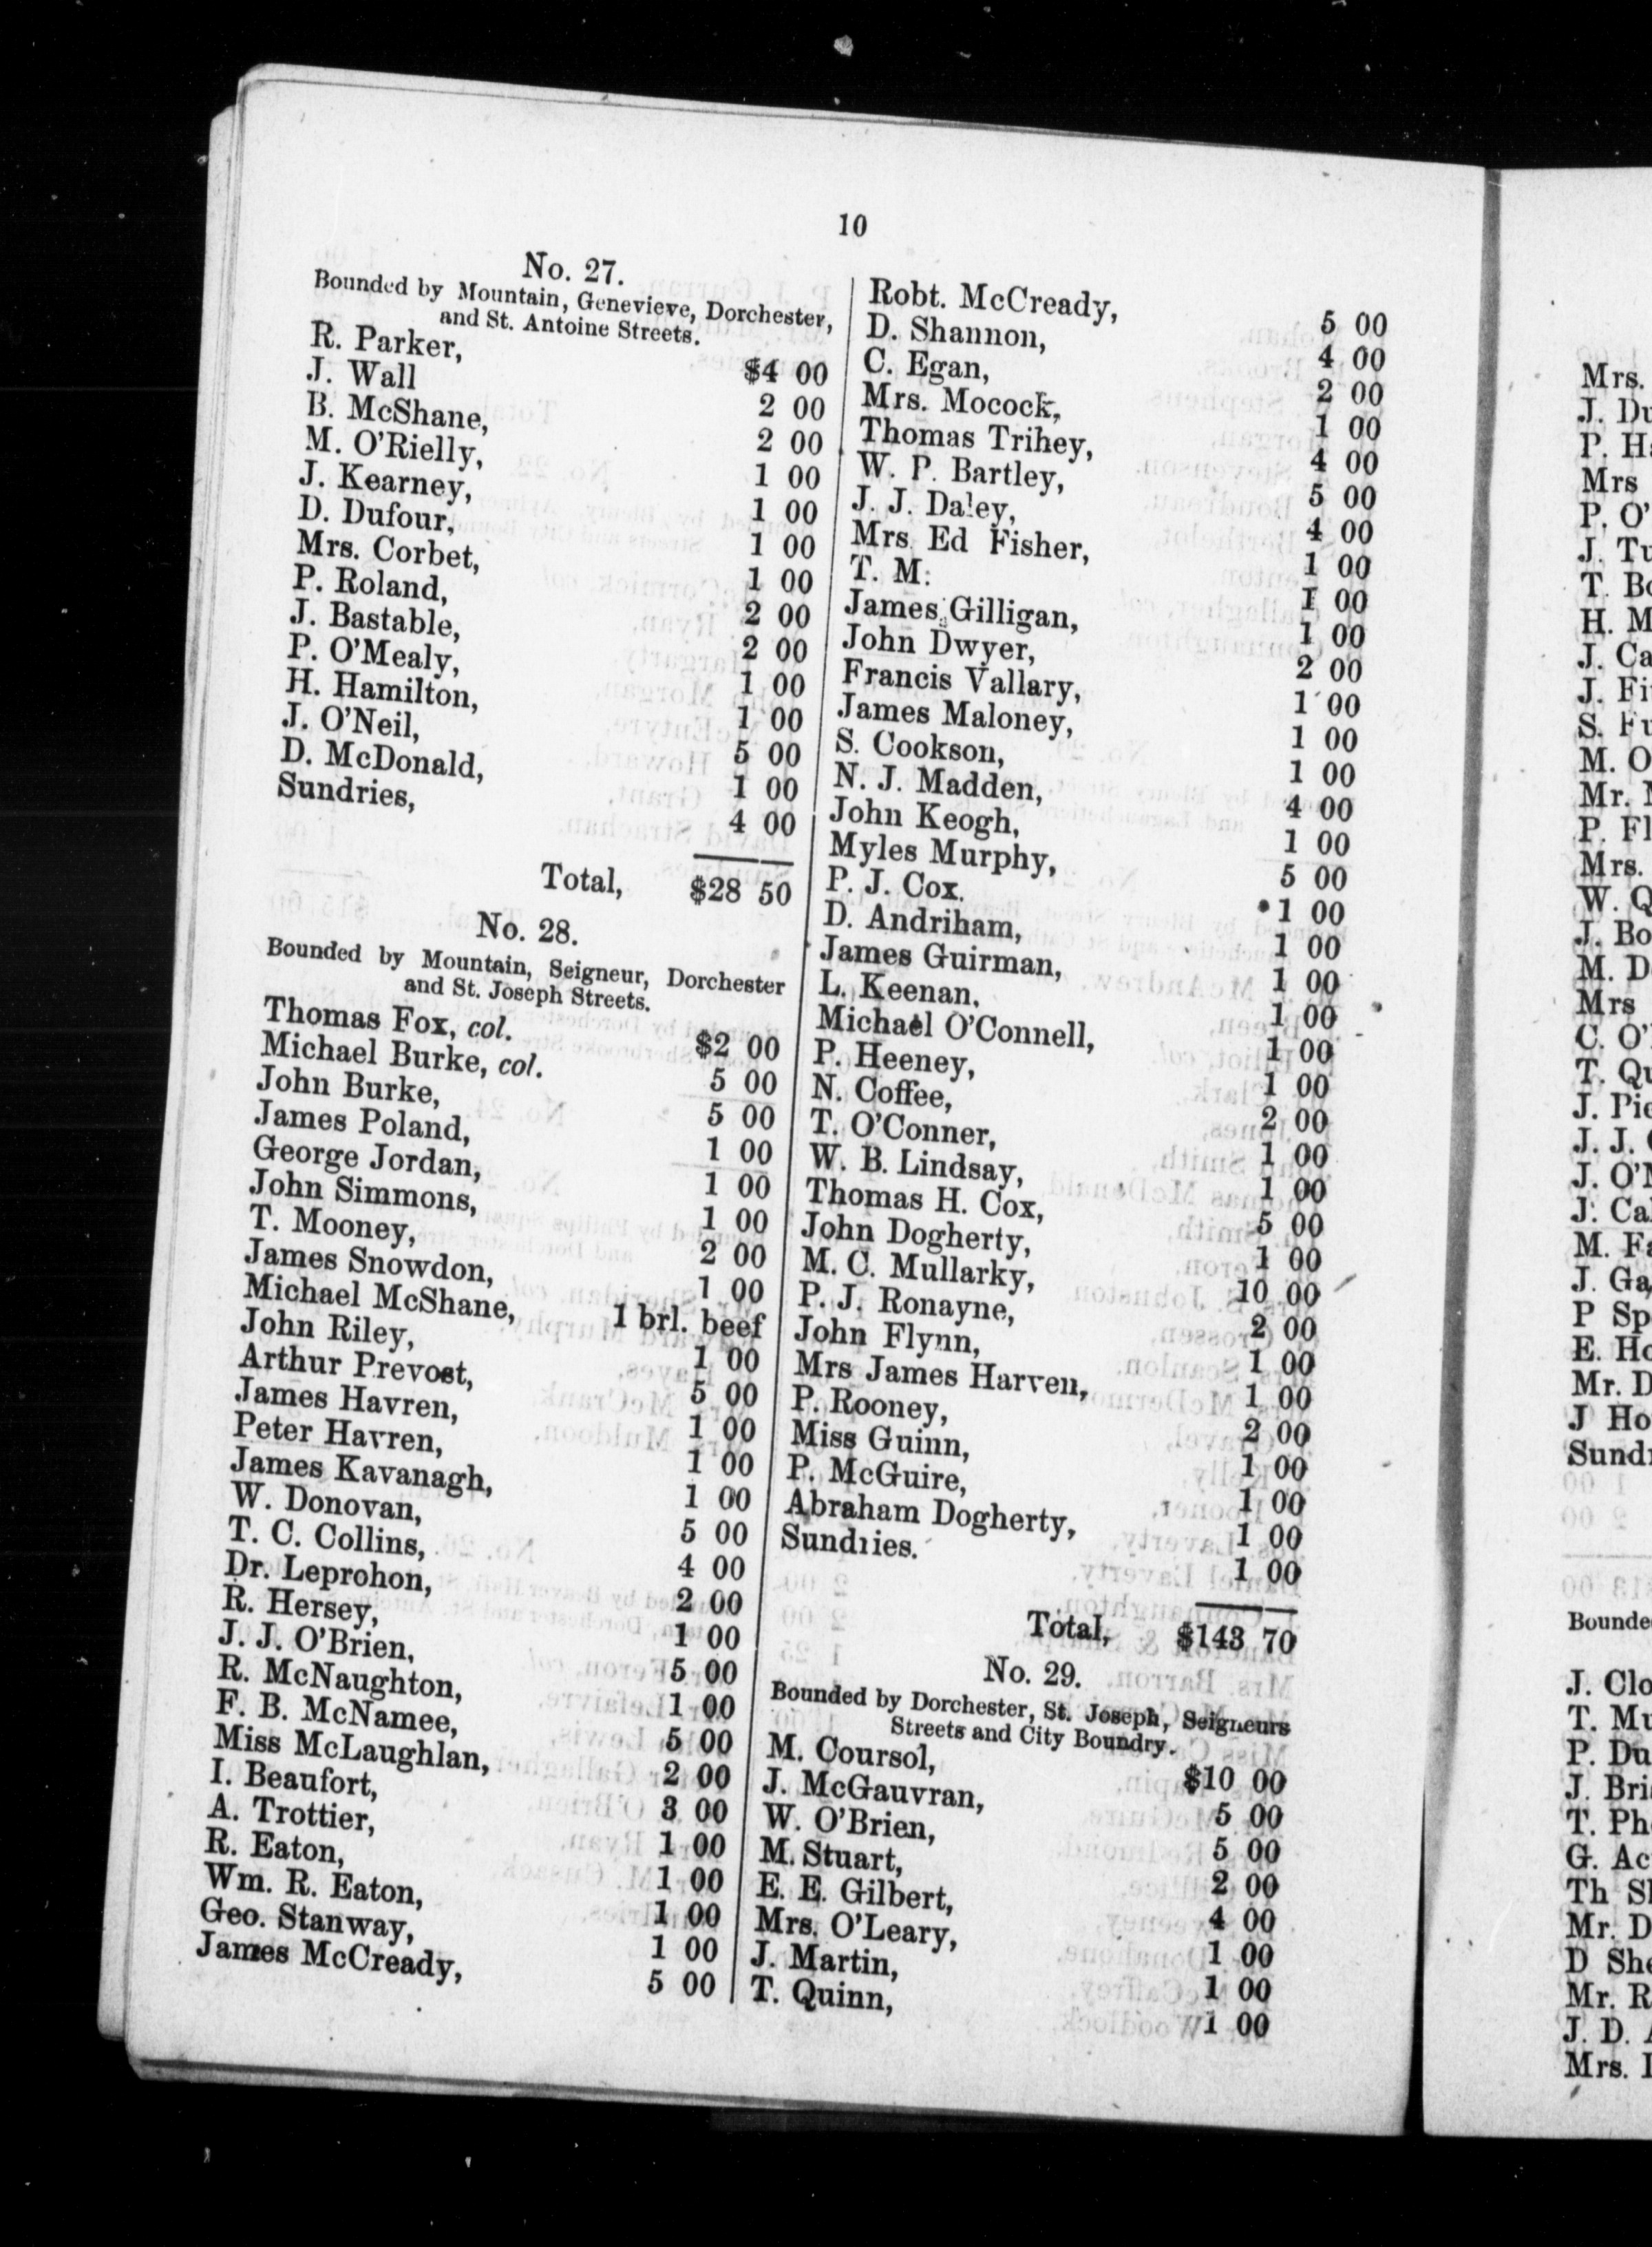 10
No. 27.
Bounded by Mountain, Genevieve, Dorchester,
and St. Antoine Streets.
R. Parker, $4 00
J. Wall 2 00
B. McShane, 2 00
M. O'Rielly, 1 00
J. Kearney, 1 00
D. Dufour, 1 00
Mrs. Corbet, 1 00
P. Roland, 2 00
J. Bastable, 2 00
P. O'Mealy, 1 00
H. Hamilton, 1 00
J. O'Neil, 5 00
D. McDonald, 1 00
Sundries, 4 00
Total, $28 50
No. 28.
Bounded by Mountain, Seigneur, Dorchester
and St. Joseph Streets.
Thomas Fox, col. $2 00
Michael Burke, col. 5 00
John Burke, 5 00
James Poland, 1 00
George Jordan, 1 00
John Simmons, 1 00
T. Mooney, 2 00
James Snowdon, 1 00
Michael McShane, 1 brl. beef
John Riley, 1 00
Arthur Prevost, 5 00
James Havren, 1 00
Peter Havren, 1 00
James Kavanagh, 1 00
W. Donovan, 5 00
T. C. Collins, 4 00
Dr. Leprohon, 2 00
R. Hersey, 1 00
J. J. O'Brien, 5 00
R. McNaughton, 1 00
F. B. McNamee, 5 00
Miss McLaughlan, 2 00
I. Beaufort, 3 00
A. Trottier, 1 00
R. Eaton, 1 00
Wm. R. Eaton, 1 00
Geo. Stanway, 1 00
James McCready, 5 00
Robt. McCready, 5 00
D. Shannon, 4 00
C. Egan, 2 00
Mrs. Mocock, 1 00
Thomas Trihey, 4 00
W. P. Bartley, 5 00
J. J. Daley, 4 00
Mrs. Ed Fisher, 1 00
T. M. 1 00
James Gilligan, 1 00
John Dwyer, 2 00
Francis Vallary, 1 00
James Maloney, 1 00
S. Cookson, 1 00
N. J. Madden, 4 00
John Keogh, 1 00
Myles Murphy, 5 00
P. J. Cox. 1 00
D. Andriham, 1 00
James Guirman, 1 00
L. Keenan, 1 00
Michael O'Connell, 1 00
P. Heeney, 1 00
N. Coffee, 2 00
T. O'Conner, 1 00
W. B. Lindsay, 1 00
Thomas H. Cox, 5 00
John Dogherty, 1 00
M. C. Mullarky, 10 00
P. J. Ronayne, 2 00
John Flynn, 1 00
Mrs James Harven, 1 00
P. Rooney, 2 00
Miss Guinn, 1 00
P. McGuire, 1 00
Abraham Dogherty, 1 00
Sundries. 1 00
Total, $143 70
No. 29.
Bounded by Dorchester, St. Joseph, Seigneurs
Streets and City Boundry.
M. Coursol, $10 00
J. McGauvran, 5 00
W. O'Brien, 5 00
M. Stuart, 2 00
E. E. Gilbert, 4 00
Mrs. O'Leary, 1 00
J. Martin, 1 00
T. Quinn, 1 00